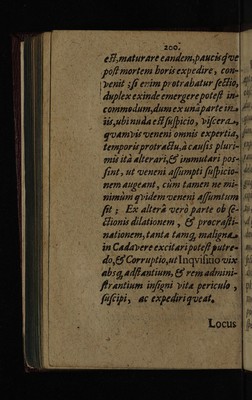 200.
est, maturare eandem, paucisq́ve
post mortem horis expedire, con-
venit; si enim protrahatur sectio,
duplex exinde emergere potest in-
commodum, dum ex unâ parte in
iis, ubi nuda est suspicio, viscera,
quamvis veneni omnis expertia,
temporis protractu, à causis pluri-
mis ità alterari, & immutari pos-
sint, ut veneni assumpti suspicio-
nem augeant, cùm tamen ne mi-
nimùm qvidem veneni assumtum
sit; Ex alterâ verò parte ob se-
ctionis dilationem, & procrasti-
nationem, tanta tamq; maligna
in Cadavere excitari potest putre-
do, & Corruptio, ut Inqvisitio vix
absq; adstantium, & rem admini-
strantium insigni vitæ periculo,
suscipi, ac expediri qveat.
Locus